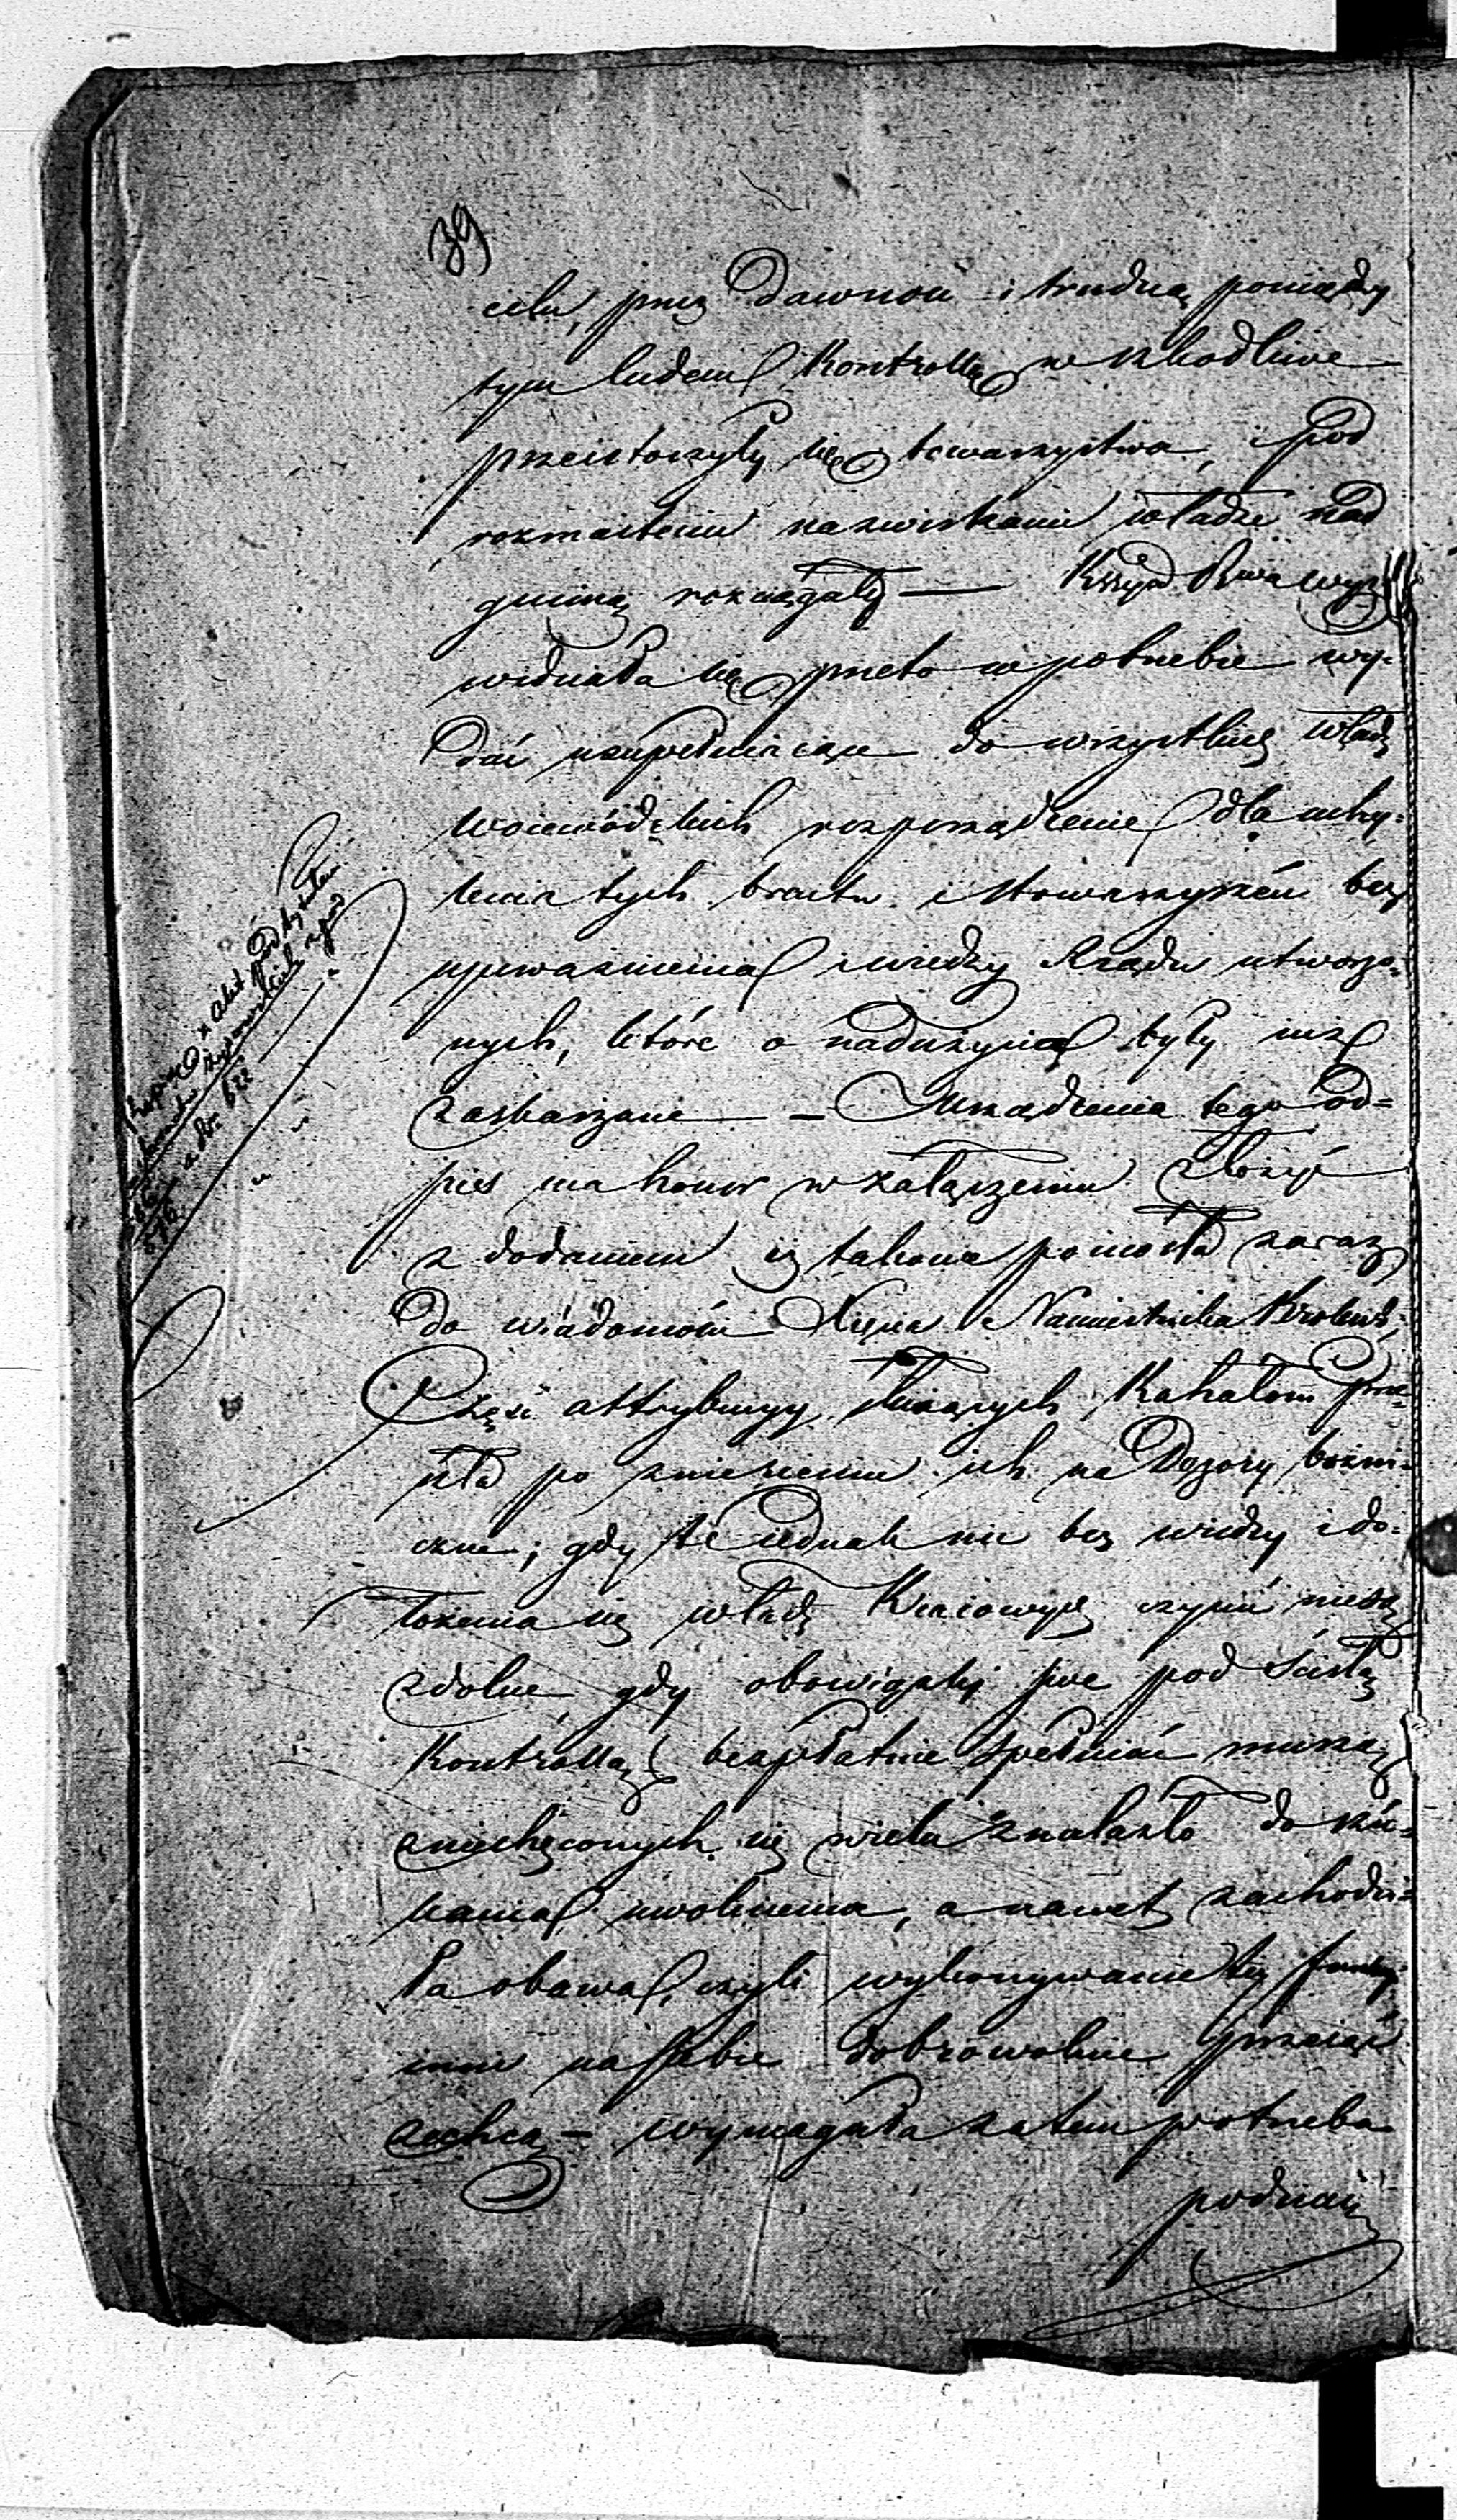 39
celu, przez dawność i trudną pomiędzy
tym ludem Kontrollę w szkodliwe
przeistoczyły się towarzystwa, i pod
rozmaitemi nazwiskami władze nad
gminą rozciągały — Kssya Rwa wyz.
widziała się przeto w potrzebie wy-
dać uzupełniaiące do wszystkich władz
Woiewódzkich rozporządzenie dla uchy-
lenia tych bractw i stowarzyszeń bez
upoważnienia i wiedzy Rządu utworzo-
nych, które o nadużycia były iuż
zaskarżane — Urządzenia tego od-
pis ma honor w załączeniu złożyć
z dodaniem iż takowe poniosła zaraz
do wiadomości Xięcia Namiestnika Królewsk:
Część attrybucyy służących Kahałom prze-
szła po zniesieniu ich na Dozory bożni-
czne; gdy te iednak nic bez wiedzy i do-
łożenia się władz Kraiowych czynić nie są
zdolne, gdy obowiązki swe pod ścisłą
Kontrollą bezpłatnie spełniać muszą
zniechęconych się wielu znalazło do szu-
kania uwolnienia, a nawet zachodzi-
ła obawa, czyli wykonywanie tey funkcyi
inni na siebie dobrowolnie przeiąć
zechcą — wymagała zatem potrzeba